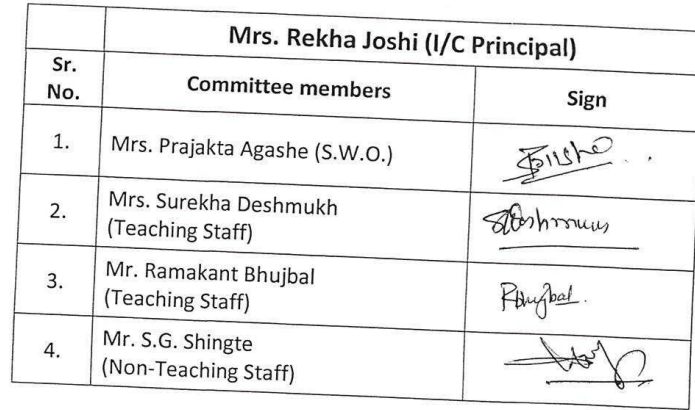 Mrs. Rekha Joshi (I/C Principal)
Sr.
No.
Committee members
Sign
1.
Mrs. Prajakta Agashe (S.W.O.)
2.
Mrs. Surekha Deshmukh
(Teaching Staff)
3.
Mr. Ramakant Bhujbal
(Teaching Staff)
Rbhujbal.
4.
Mr. S.G. Shingte
(Non-Teaching Staff)